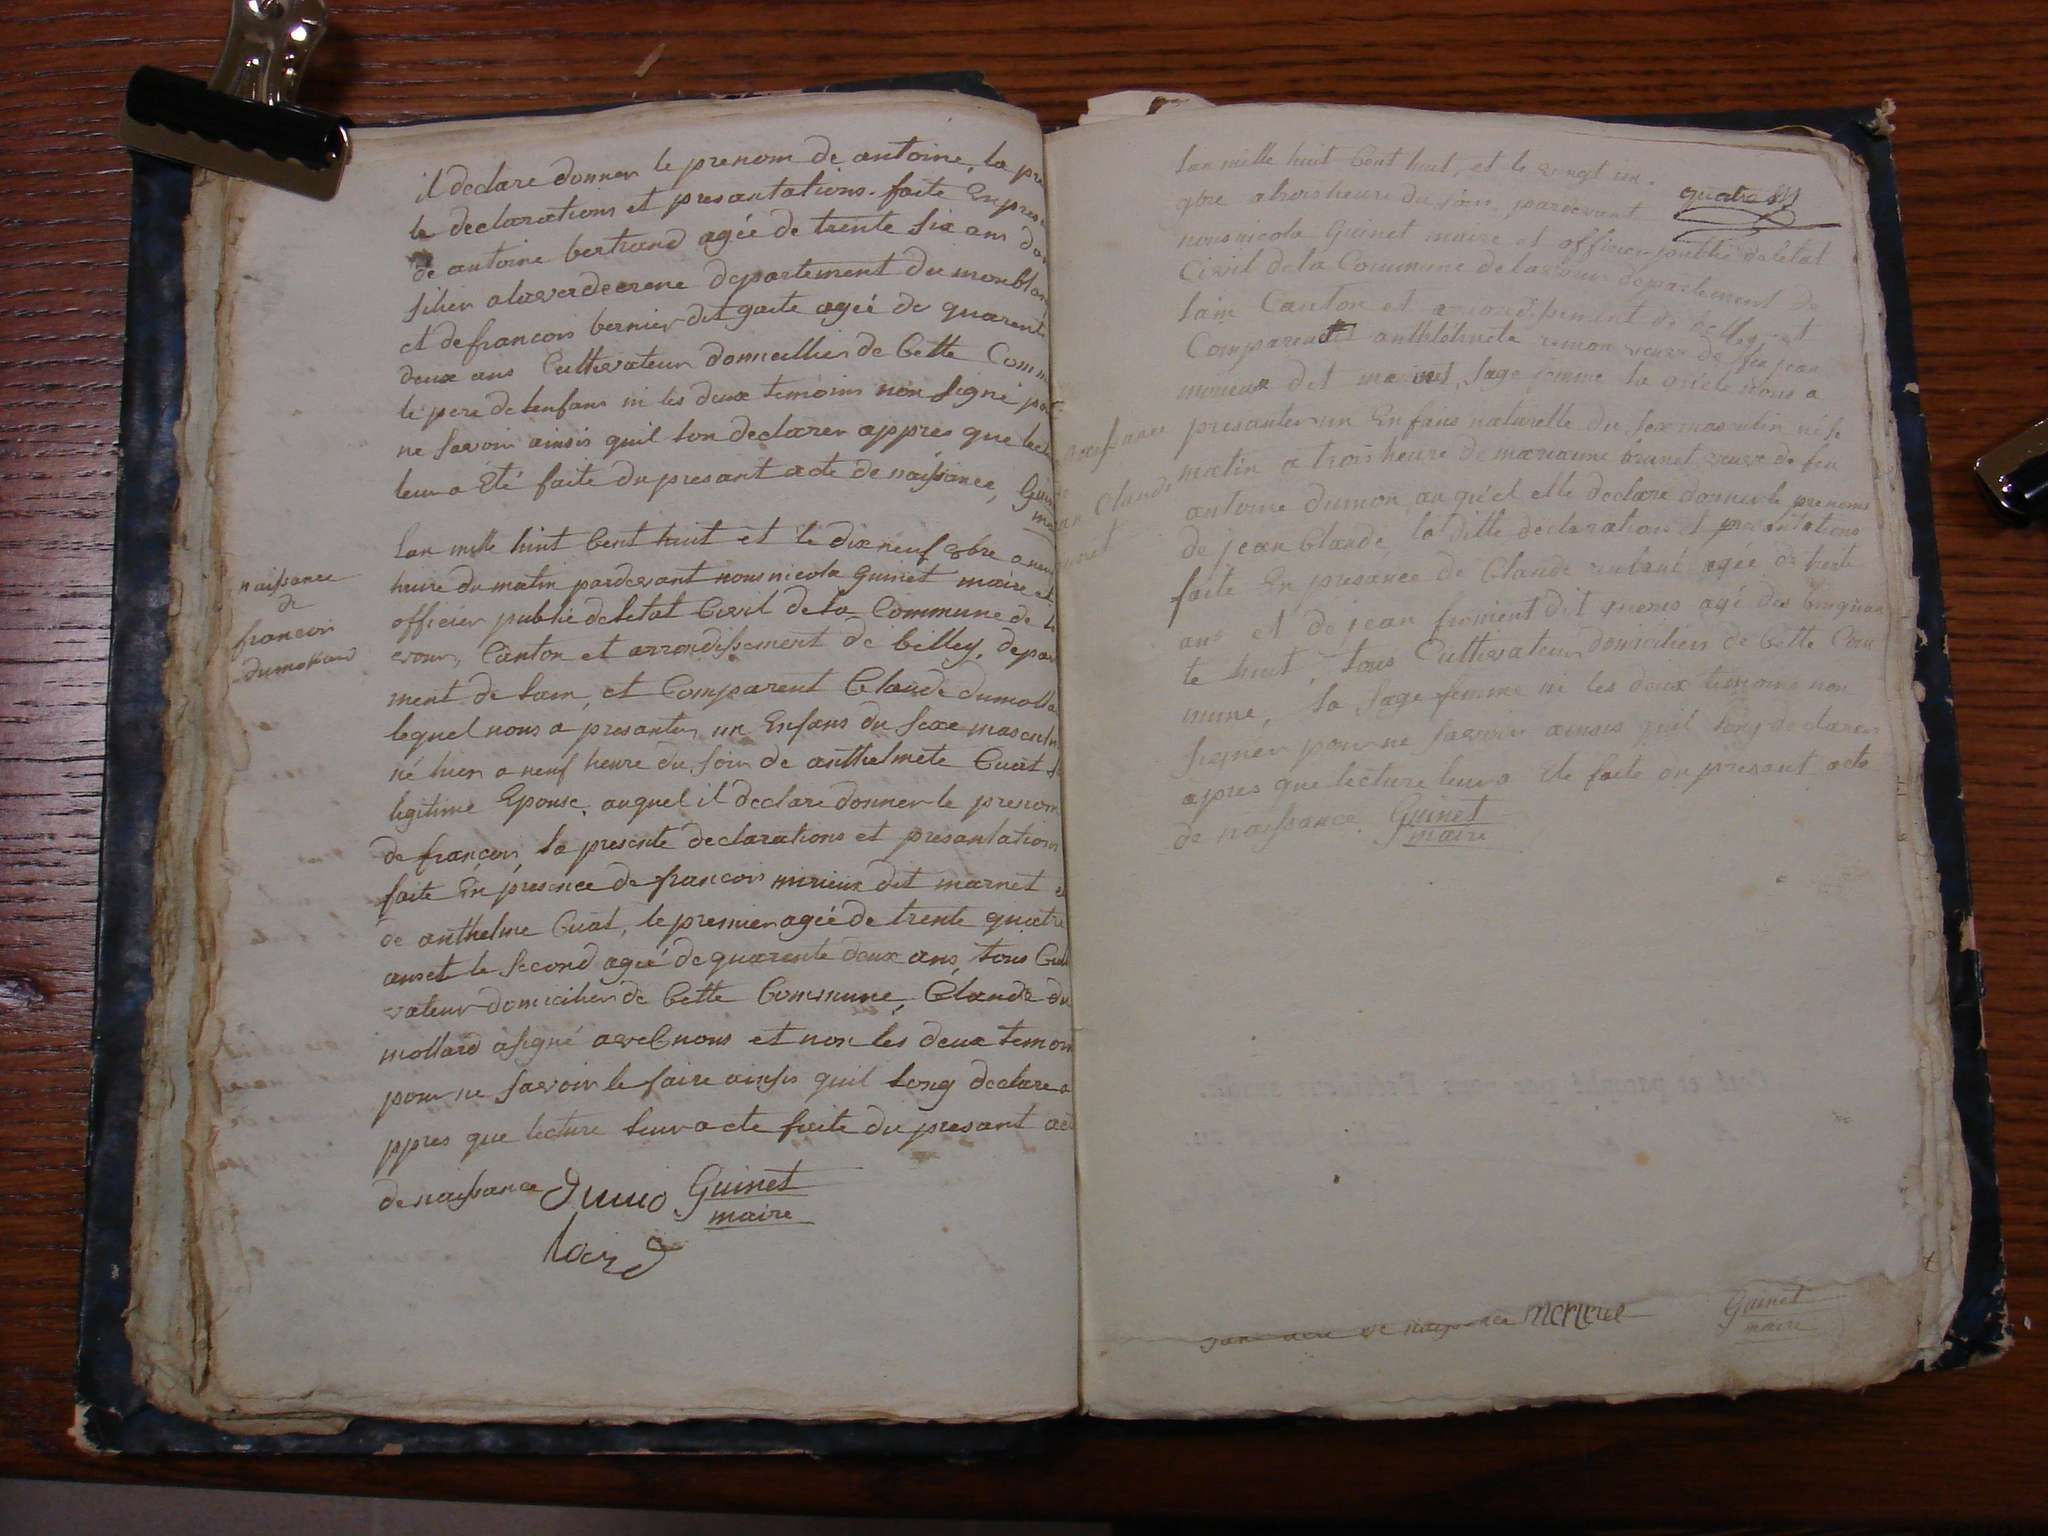 il declare donner le prenom de antoine, la pre
le declarations et presantations faite En pres
de antoine bertrand agée de trente six ans do
silier a lavardecrene departement du monblan
et de francois bernier dit gaite agée de quarente
deux ans Cultivateur domicillier de Cette Comm
le pere de lenfans ni les deux temoins non Signé pour
ne Savoir ainsis quil lon declarer appres que lect
leur a Eté faite du presant acte de naissance, Guin
ma
naissance
de
francois
dumollard
Lan mille huit Cent huit et le dix neuf 9bre a neuf
heure du matin pardevant nous nicola guinet maire et
officier public de letat Civil de la Commune de la
vour, Canton et arrondissement de belley, depar
ment de lain, et Comparent Claude dumolla
lequel nous a presanter un Enfans du Sexe masculin
né hier a neuf heure du soir de anthelmete Cuat S
legitime Epouse, auquel il declare donner le prenom
de francois, la presente declarations et presantations
faite En presence de francois mirieux dit marnet et
de anthelme Cuat, le premier agée de trente quatre
ans et le Second agée de quarente deux ans, tous Cult
vateur domicilier de Cette Commune, Claude du
mollard a signé avec nous et non les deux temoin
pour ne Savoir le faire ainsis quil long declare a
ppres que lecture leur a ete faite du presant act
de naissance dumo Guinet
maire
lard
quatre
Lan mille huit Cent huit, et le vingt un
9bre a trois heure du soir pardevant
nous nicola Guinet maire et officier public de letat
Civil de la Commune de lavour departement de
lain Canton et arrondissement de belley, et
Comparent anthelmete remon veuve de feu jean
mirieux dit marnet, Sage femme la quele nous a
naissance
de
jean Claude
brunet
presanter un Enfans naturelle du Sexe masculin né Ce
matin a trois heure de marianne brunet veuve de feu
antoine dumon, au quel elle declare donner le prenoms
de jean Claude, la ditte declarations et presantations
faite En presance de Claude agée de trente
ans et de jean froment dit agé de Cinquan
te huit, tous Cultivateur domicilier de Cette Com
mune, la Sage femme ni les deux temoins non
Signer pour ne Savoir ainsis quil long declarer
apres que lecture leur a Ete faite du presant acte
de naissance Guinet
maire
de naissance merieux
Guinet
maire